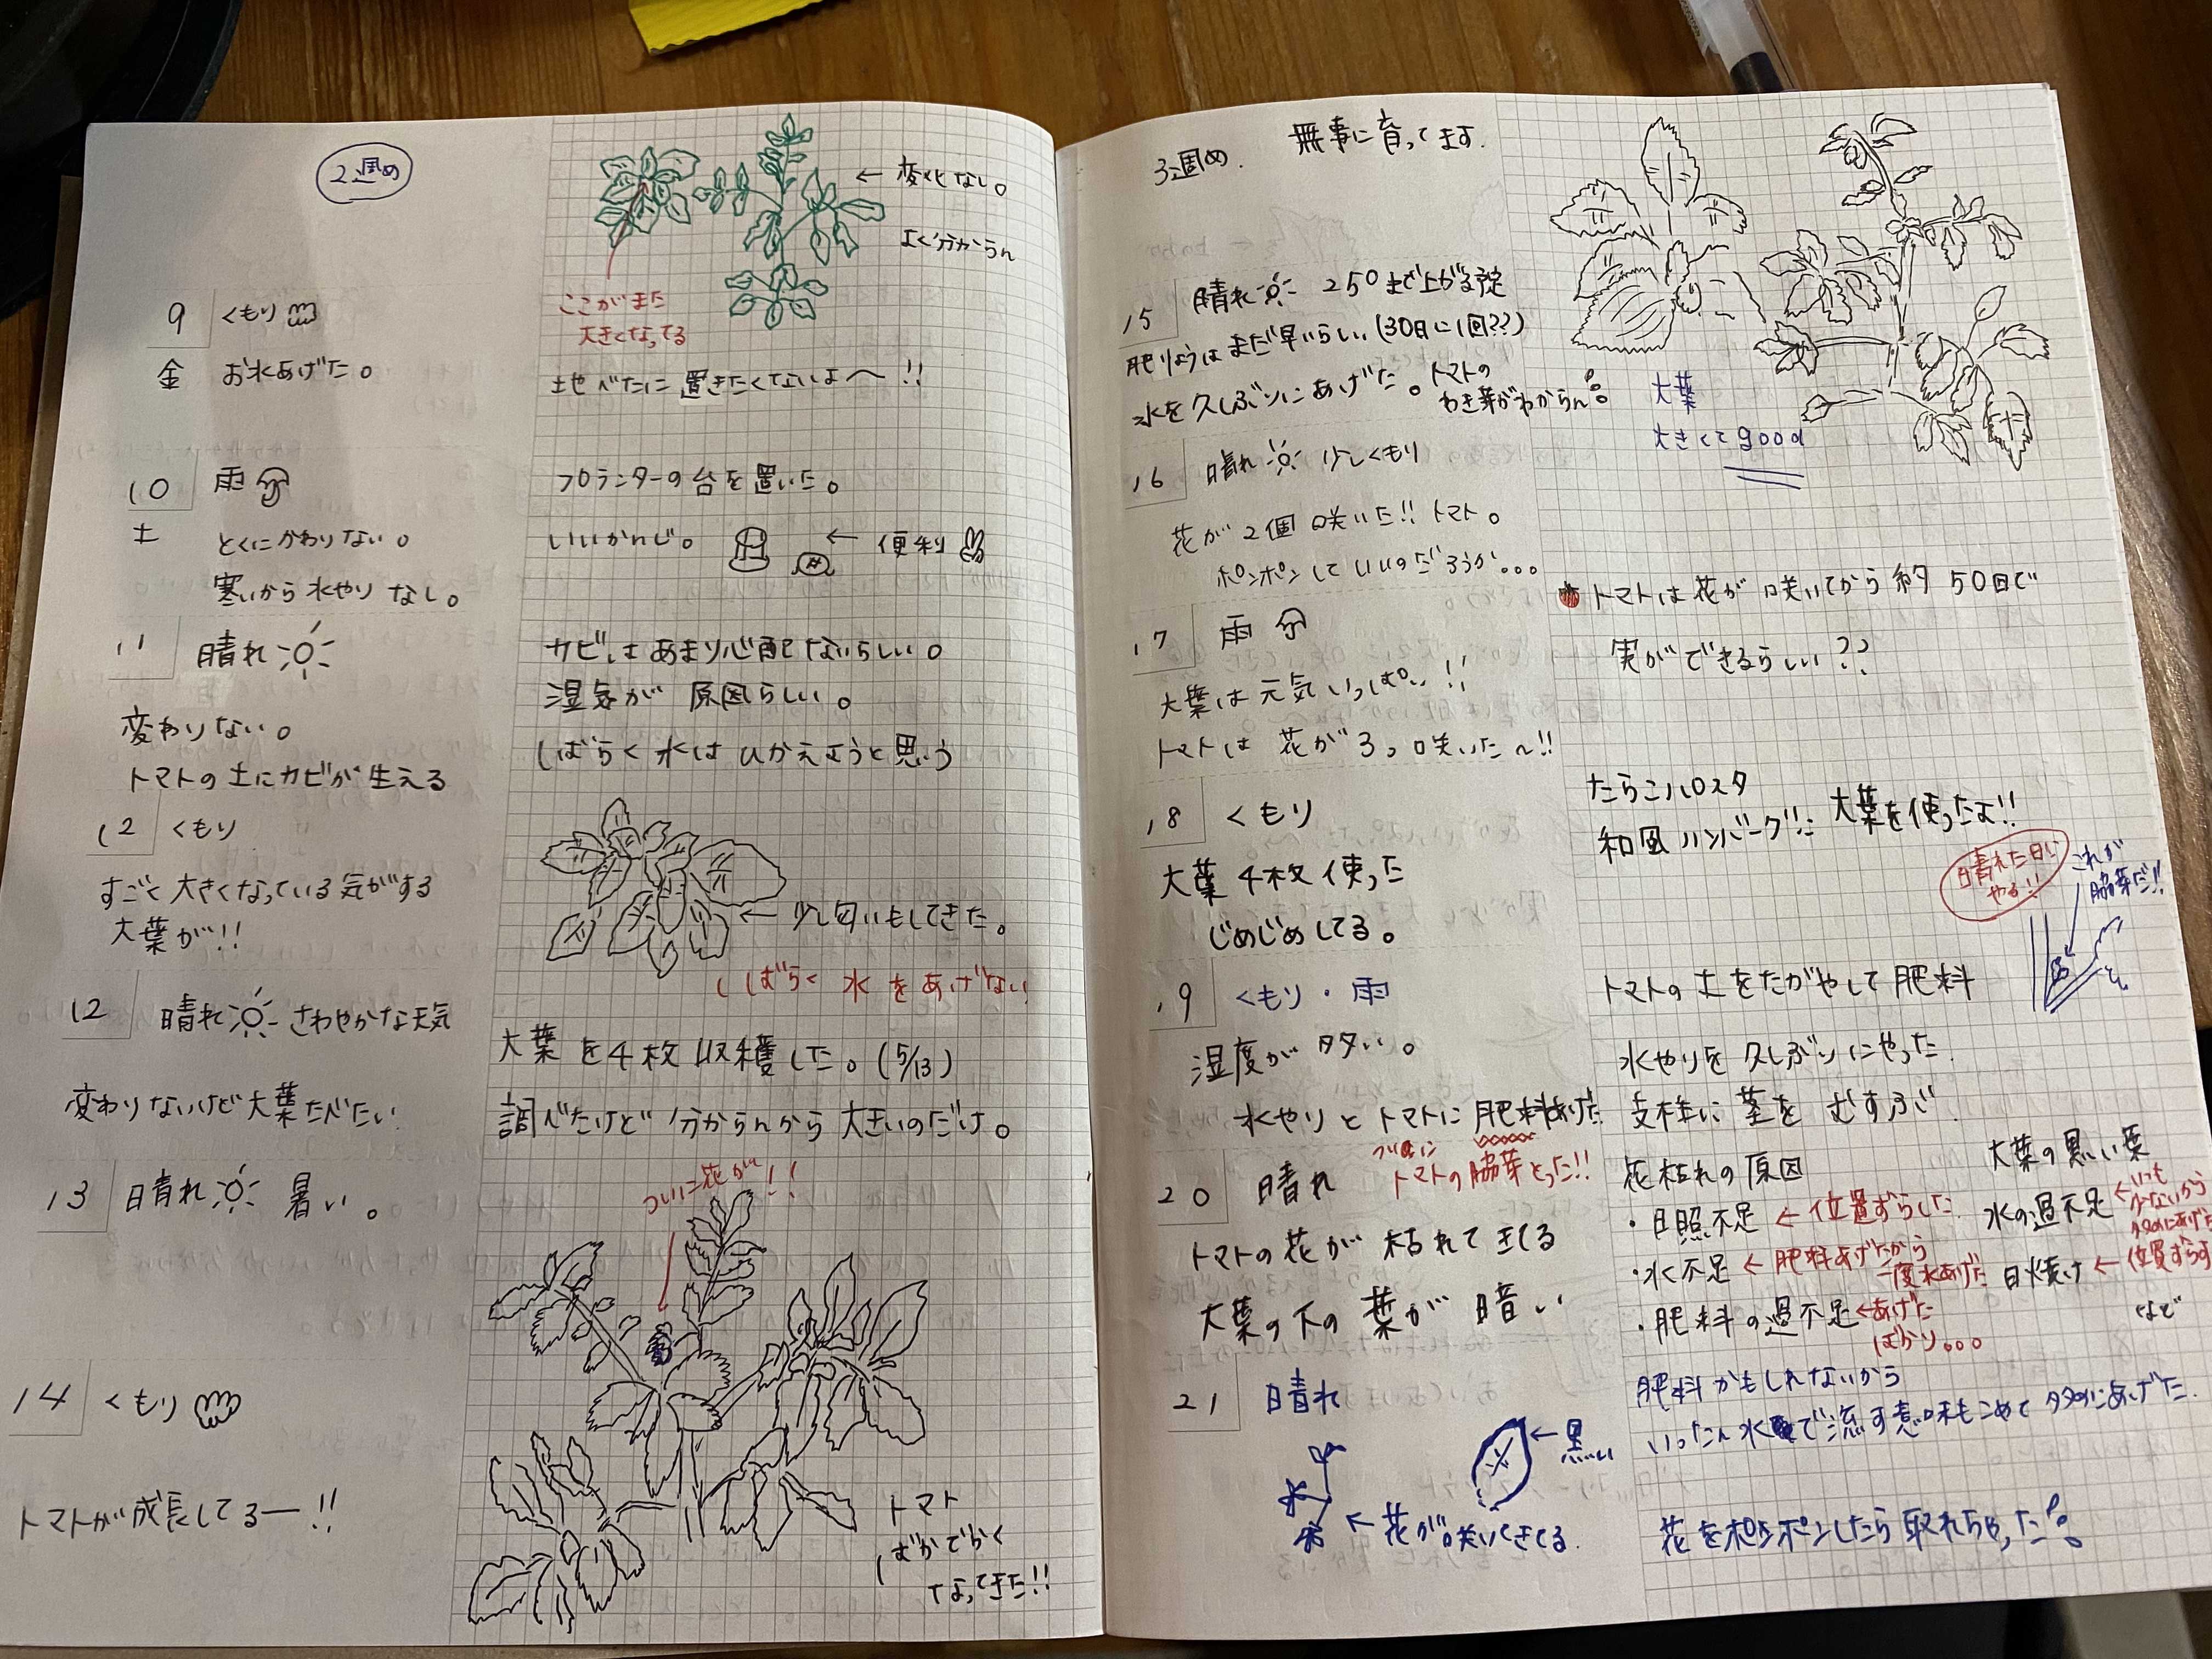 2週め
← 変化なし。
よく分からん
ここがまた
大きくなってる
9 くもり
金 お水あげた。
地べたに置きたくないよ〜!!
10 雨
土 とくにかわりない。
寒いから水やりなし。
プランターの台を置いた。
いいかんじ。 ← 便利
11 晴れ
変わりない。
トマトの土にカビが生える
カビはあまり心配ないらしい。
湿気が原因らしい。
しばらく水はひかえようと思う
12 くもり
すごく大きくなっている気がする
大葉が!!
← 少し匂いもしてきた。
しばらく水をあげない
12 晴れ さわやかな天気
変わりないけど大葉たべたい
大葉を4枚収穫した。(5/13)
調べたけど分からんから大きいのだけ。
13 晴れ 暑い。
ついに花が!!
14 くもり
トマトが成長してるー!!
トマト
ばかでかく
なってきた!!
3週め. 無事に育ってます.
15 晴れ 25°まで上がる予定
肥りょうはまだ早いらしい(30日に1回??)
水を久しぶりにあげた。
トマトの
わき芽がわからん
大葉
大きくてgood
16 晴れ 少しくもり
花が2個咲いた!!トマト。
ポンポンしていいのだろうか...
トマトは花が咲いてから約50日で
実ができるらしい??
17 雨
大葉は元気いっぱい!!
トマトは花が3つ咲いた〜!!
18 くもり
大葉4枚使った
じめじめしてる。
たらこパスタ
和風ハンバーグに大葉を使ったよ!!
晴れた日に
やる!!
これが
脇芽だ!!
19 くもり・雨
湿度が多い。
水やりとトマトに肥料あげた
トマトの土をたがやして肥料
水やりを久しぶりにやった.
支柱に茎をむすぶ.
20 晴れ
ついに
トマトの脇芽とった!!
トマトの花が枯れてきてる
大葉の下の葉が暗い
花枯れの原因
・日照不足 ← 位置ずらした
・水不足 ← 肥料あげたから
一度水あげた
・肥料の過不足 ← あげた
ばかり...
大葉の黒い葉
水の過不足 ← いつも
少ないから
多めにあげた
日焼け ← 位置ずらす
など
21 晴れ
← 黒い
← 花が咲いてきてる.
肥料かもしれないから
いったん水で流す意味もこめて多めにあげた.
花をポンポンしたら取れちゃった